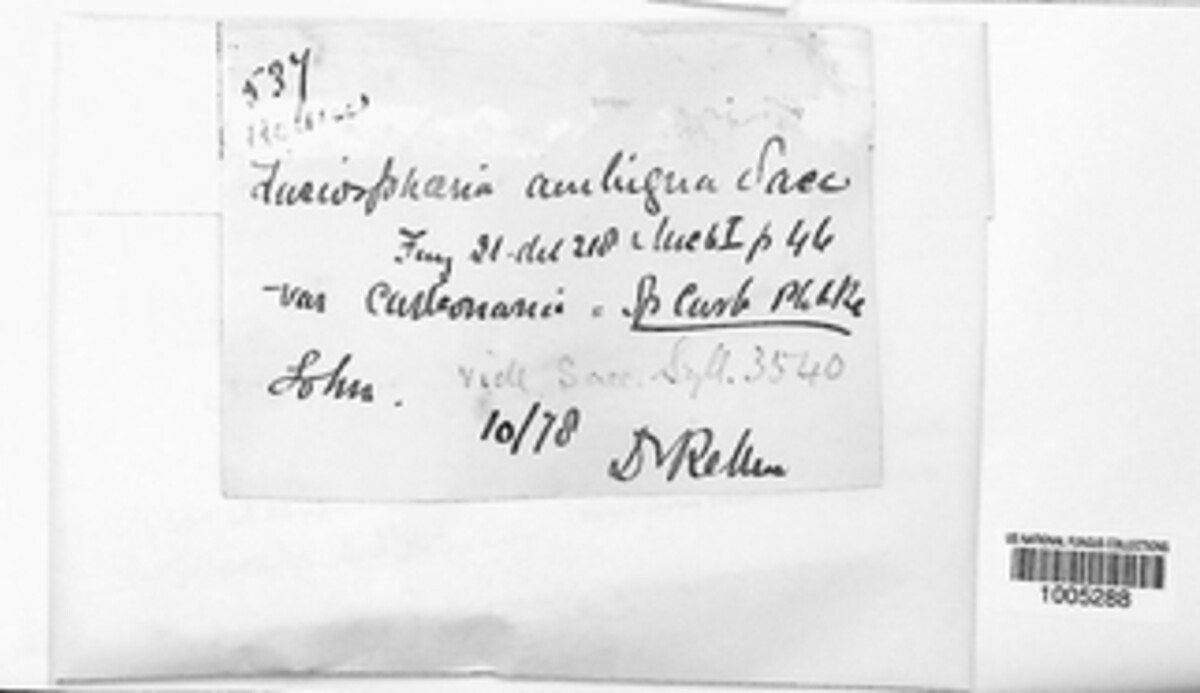 537
Lasiosphaeria ambigua Sacc
Fung It. del 218 Mich I p 46
var carbonaria = Sp Carb Ph & Pl
Lohn.
vide Sacc. Syll. 3540
10/78
Dr Rehm
US NATIONAL FUNGUS COLLECTIONS
1005288